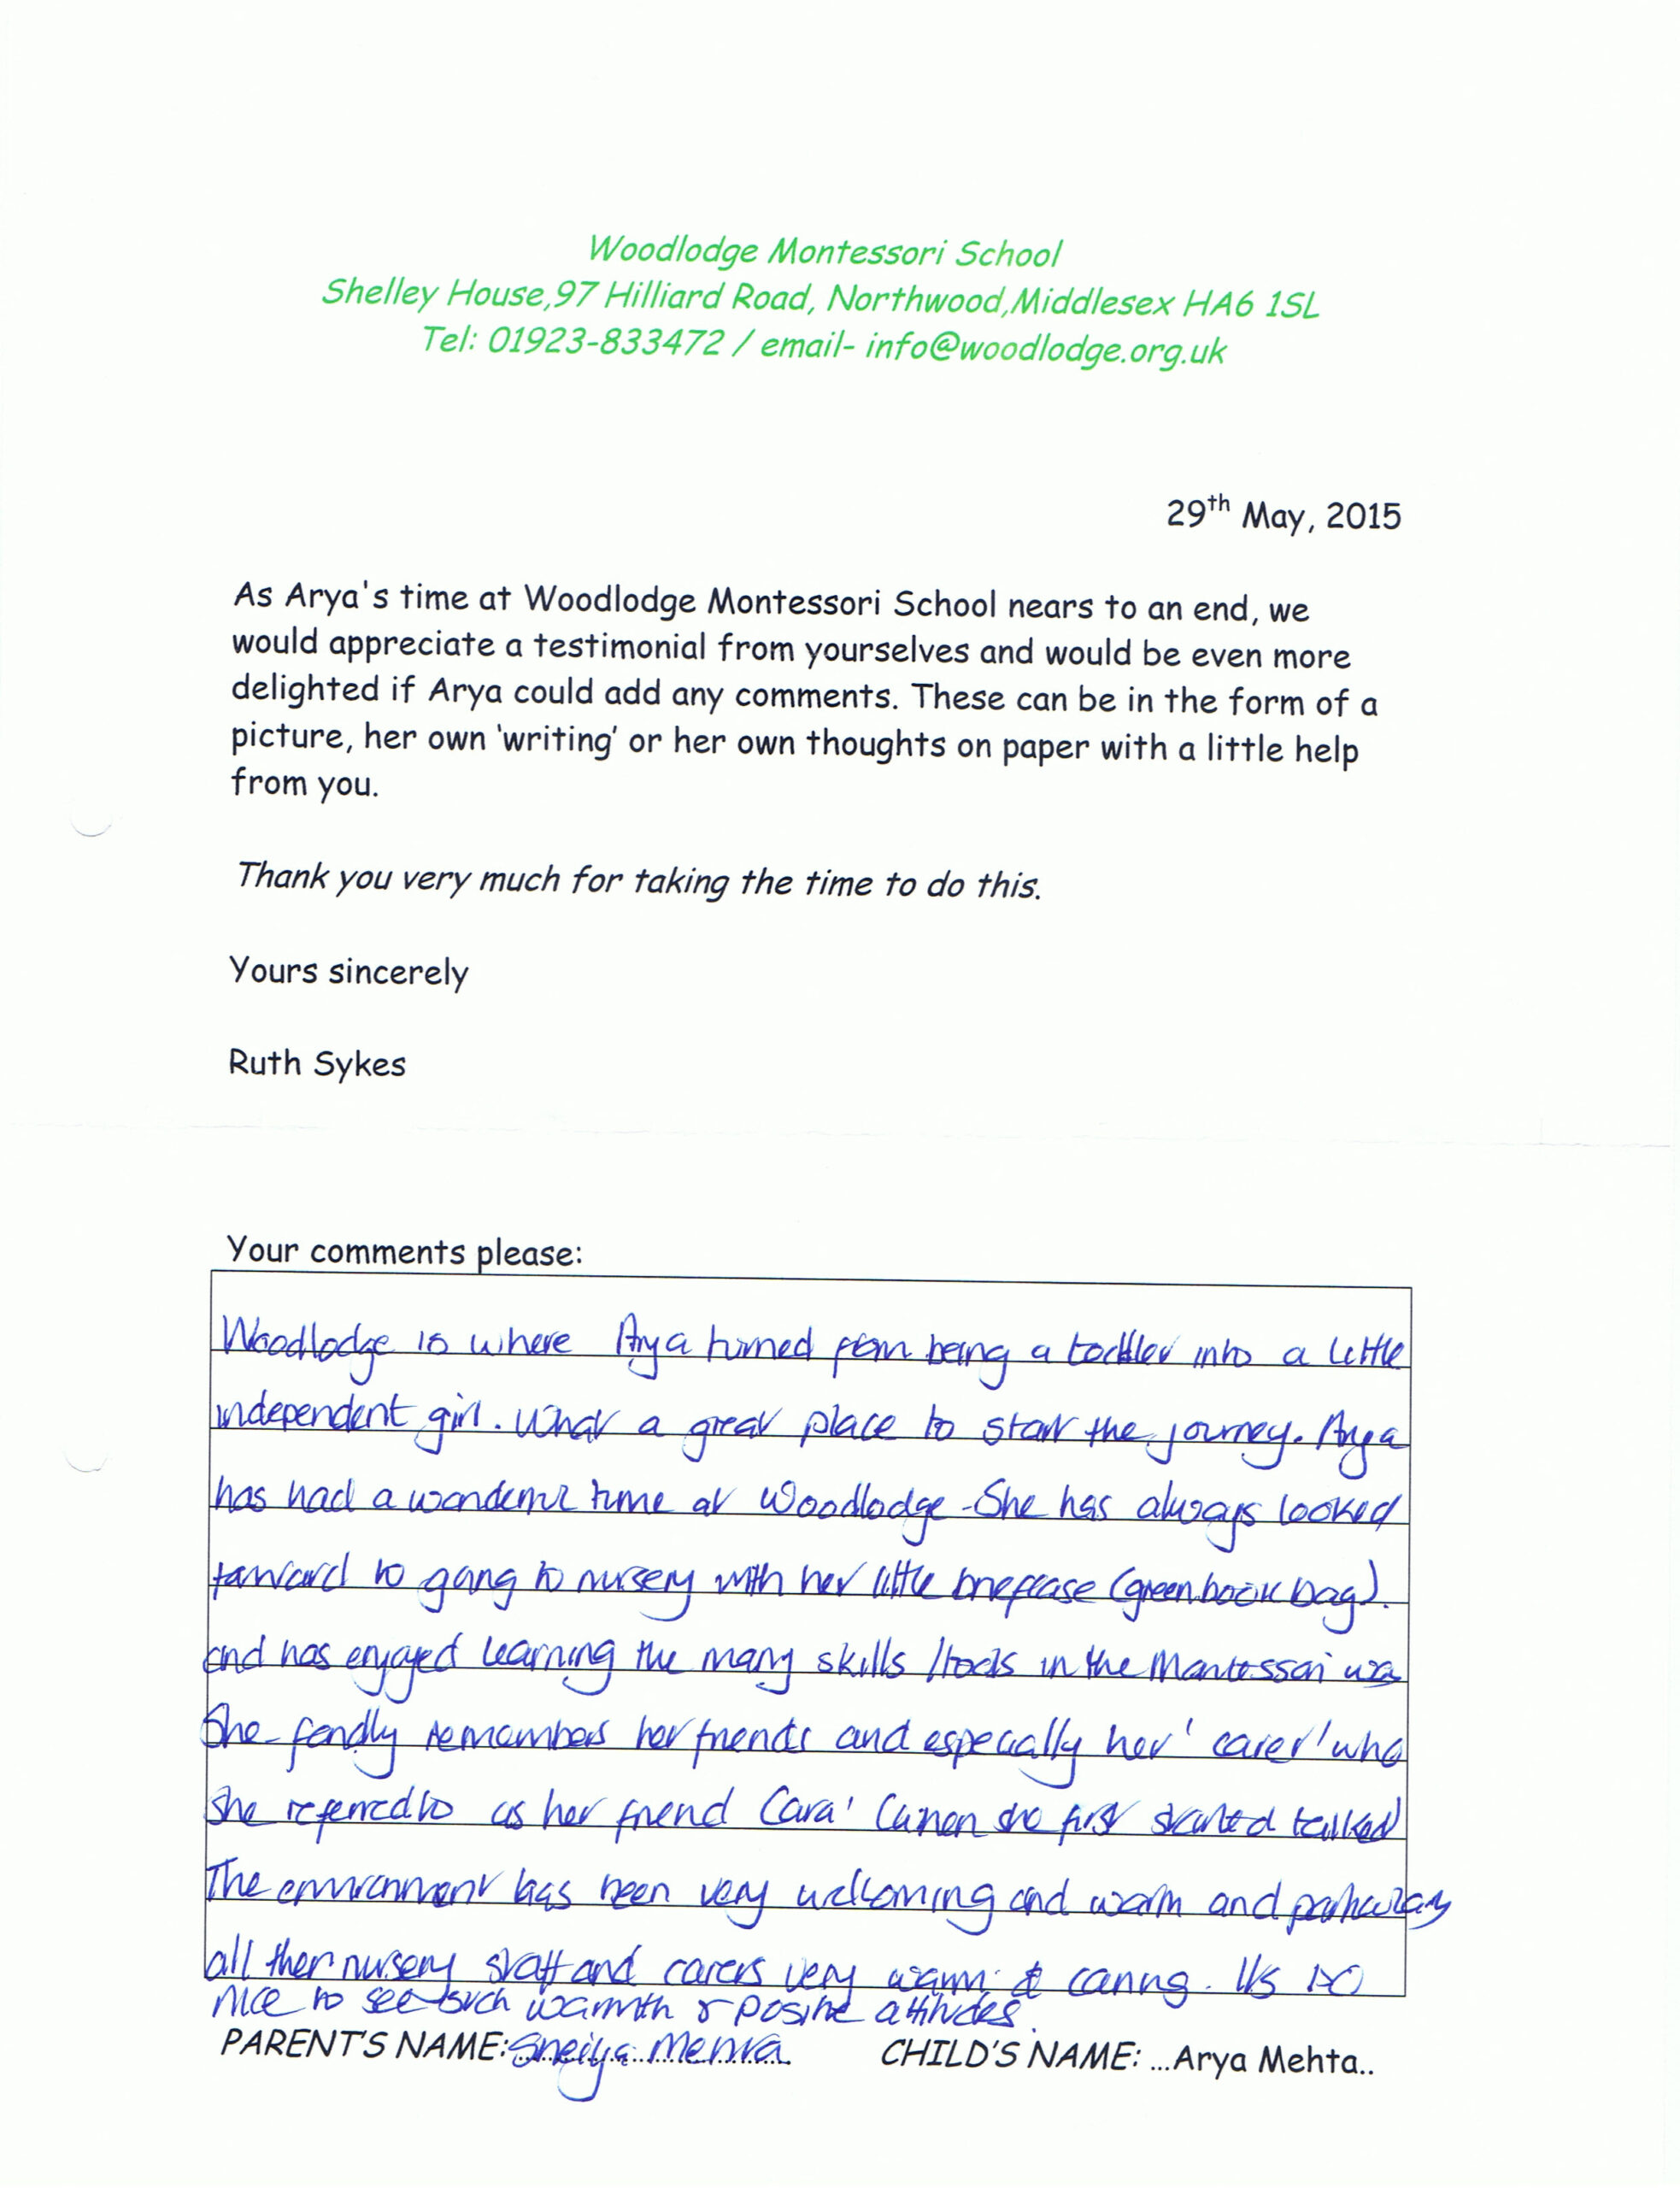 Woodlodge Montessori School
Shelley House,97 Hilliard Road, Northwood,Middlesex HA6 1SL
Tel: 01923-833472 / email- info@woodlodge.org.uk
29th May, 2015
As Arya's time at Woodlodge Montessori School nears to an end, we
would appreciate a testimonial from yourselves and would be even more
delighted if Arya could add any comments. These can be in the form of a
picture, her own 'writing' or her own thoughts on paper with a little help
from you.
Thank you very much for taking the time to do this.
Yours sincerely
Ruth Sykes
Your comments please:
Woodlodge is where Arya turned from being a toddler into a little
independent girl. What a great place to start the journey. Arya
has had a wonderful time at Woodlodge - She has always looked
forward to going to nursery with her little briefcase (green book bag).
and has enjoyed learning the many skills / tools in the Montessori way
She fondly remembers her friends and especially her 'carer' who
she referred to as her friend Cara' (when she first started talked
The environment has been very welcoming and warm and particularly
all ther nursery staff and carers very warm & caring. It's so
nice to see such warmth & positive attitudes.
PARENT'S NAME: Mehta CHILD'S NAME: ...Arya Mehta..